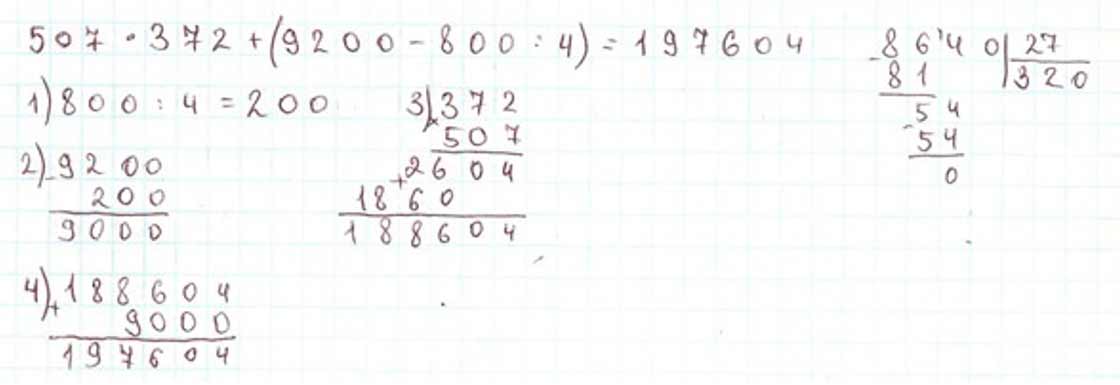 507 · 372 + (9200 - 800 : 4) = 197604
1) 800 : 4 = 200
2) - 9200
200
9000
3) x 372
507
+ 2604
1860
188604
4) + 188604
9000
197604
- 8640 | 27
81 | 320
- 54
54
0